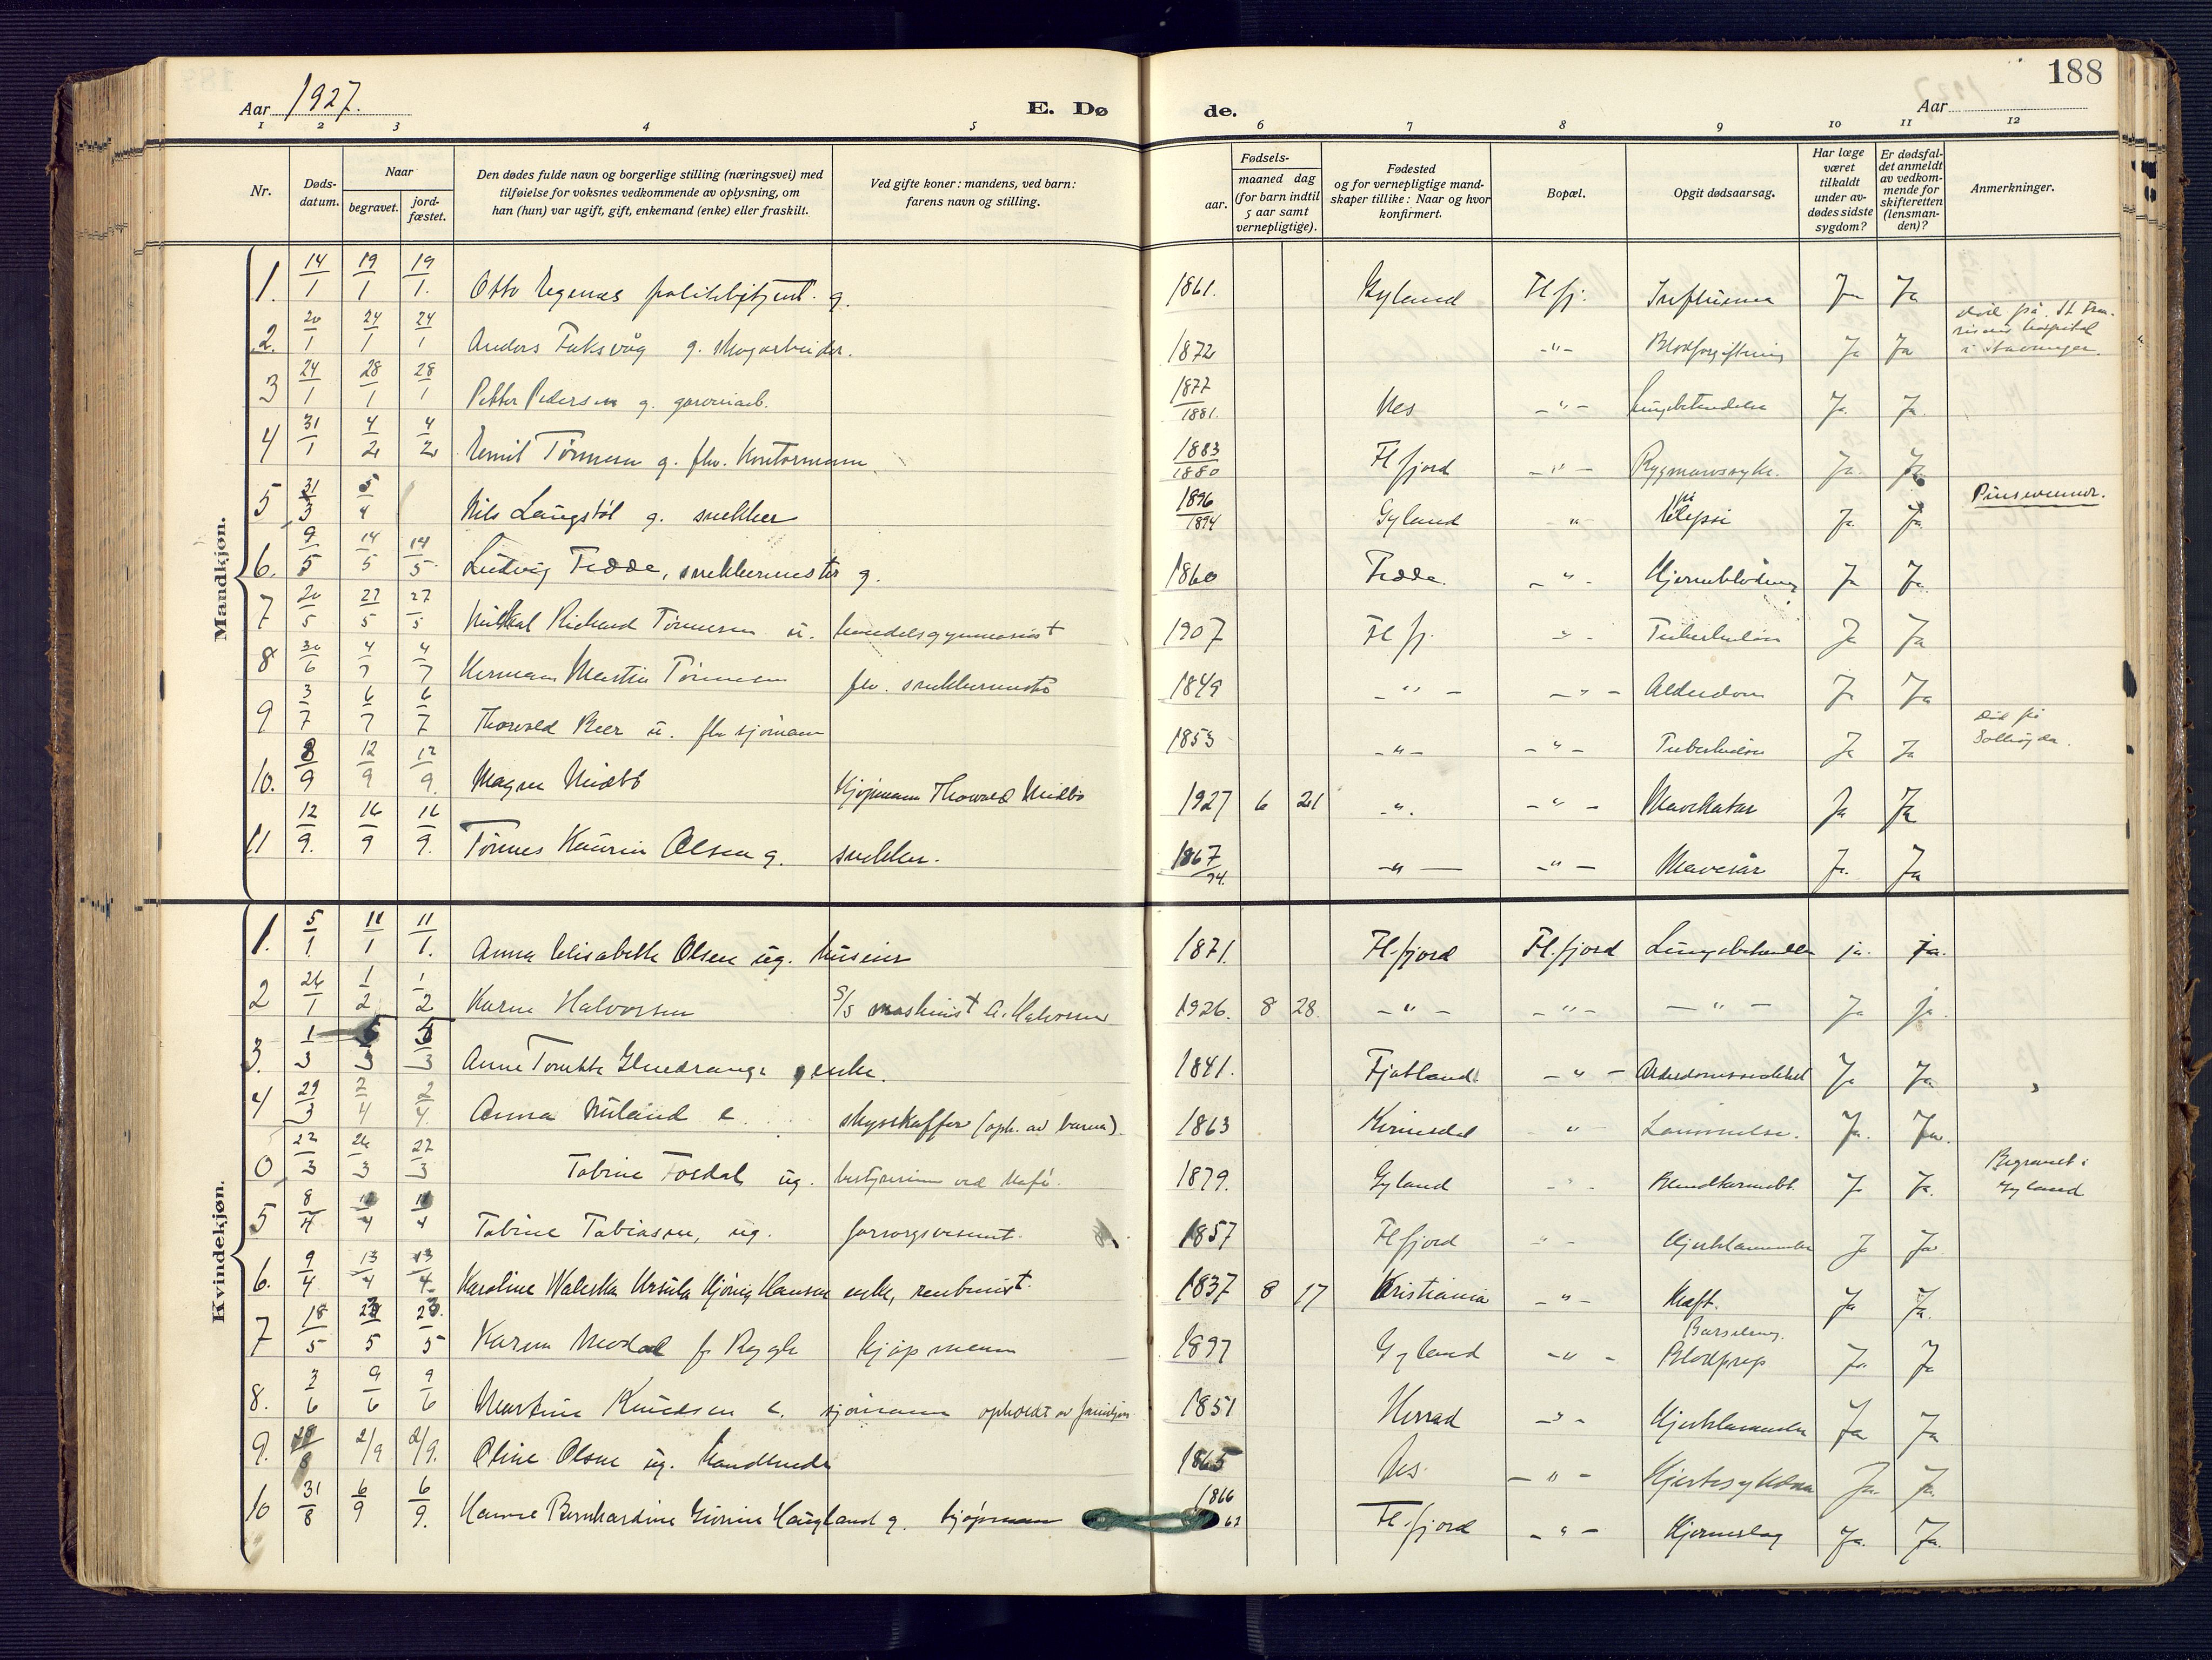 188
Aar 1927. E. Dø de. Aar
1 2 3 4 5 6 7 8 9 10 11 12
Nr.
Døds-
datum.
Naar
begravet.
jord-
fæstet.
Den dødes fulde navn og borgerlige stilling (næringsvei) med
tilføielse for voksnes vedkommende av oplysning, om
han (hun) var ugift, gift, enkemand (enke) eller fraskilt.
Ved gifte koner: mandens, ved barn:
farens navn og stilling.
Fødsels-
aar.
maaned dag
(for barn indtil
5 aar samt
vernepligtige).
Fødested
og for vernepligtige mand-
skaper tillike: Naar og hvor
konfirmert.
Bopæl.
Opgit dødsaarsag.
Har læge
været
tilkaldt
under av-
dødes sidste
sygdom?
Er dødsfal-
det anmeldt
av vedkom-
mende for
skifteretten
(lensman-
den)?
Anmerkninger.
Mandkjøn.
1. 14/1 19/1 19/1. Otto g. 1861. Gyland Fl.fj. Influensa Ja Ja
2. 20/1 24/1 24/1 Anders g. skogarbeider. 1872 -"- Blodforgiftning Ja Ja død på St. hospital i Stavanger.
3 24/1 28/1 28/1 Petter Pedersen g. garveriarb. 1877/1881. Nes -"- Lungebetendelse Ja. Ja.
4 31/1 4/2 4/2 Emil Tønnesen g. fhv. kontormann. 1883/1880 Fl.fjord -"- Rygmarvssyke. Ja. Ja
5 31/3 5/4 Nils Langstøl g. snekker 1896/1894 Gyland " Ja Ja Pinsevenner.
6. 9/5 14/5 14/5. Ludvig Fedde, snekkermester g. 1860 Fedde. -"- Hjerneblødning Ja Ja.
7 20/5 27/5 27/5 Richard Tønnesen u. handelsgymnasist 1907 Fl.fj. -"- Tuberkulose Ja Ja
8 30/6 4/7 4/7 Herman Martin Tønnesen fhv. snekkermester 1849 -"- -"- Alderdom Ja Ja
9 3/7 6/7 6/7 Thorvald Beer u. fhv sjømann 1853 -"- -"- Tuberkulose Ja Ja Død på
10. 8/9 12/9 12/9. Magne Midtbø Kjøpmann Thorvald Midtbø 1927 6 21 -"- -"- Mavekatar Ja Ja
11 12/9. 16/9 16/9. Tønnes Olsen g. snekker. 1867/94. -"- -"- Mavesår Ja. Ja
Kvindekjøn.
1. 5/1. 11/1 11/1. Anna Elisabeth Olsen ug. huseier 1871. Fl.fjord Fl.fjord Lungebetendelse ja. ja.
2 26/1 1/2 1/2 Karen Halvorsen S/S maskinist A. Halvorsen 1926. 8 28. -"- -"- -"- Ja ja.
3. 1/3 5/3 5/3 Anne Tomette enke. 1841. Fjotland -"- Ja Ja
4 29/3 2/4 2/4. Anna e. skysskaffer (oph. av barna). 1863 Kvinesdal " Lammelse. Ja. Ja.
0 22/3 26/3 22/3 Tobine ug. bestyrerinne ved kafé. 1879. Gyland -"- Blindtarmbet. Ja Ja. Begravet i Gyland
5 8/4 4 4 Tobine Tobiasen, ug. forsorgsvesenet. 1857 Fl.fjord -"- Hjertelammelse Ja Ja
6. 9/4 13/4 13/4 Karoline Waleska Ursula Hansen enke, rentenist. 1837 8 17 Kristiania -"- Kræft. Ja Ja.
7 18/5 23/5 23./5 Karen f. Rygh kjøpmann 1897 Gyland -"- Barselseng. Blodprop Ja Ja
8. 3/6 9/6 9/6 Martine Knudsen e. sjømann opholdt av familien. 1851 Herrad -"- Hjertelammelse Ja Ja
9. 8 2/9 2/9. Oline Olsen ug. handlende 1865 Nes. -"- Hjertesykdom Ja. Ja.
10 31/8 6/9 6/9. Hanne Bernhardine Haugland g. kjøpmann 1866 Fl.fjord -"- Hjerneslag Ja. Ja.